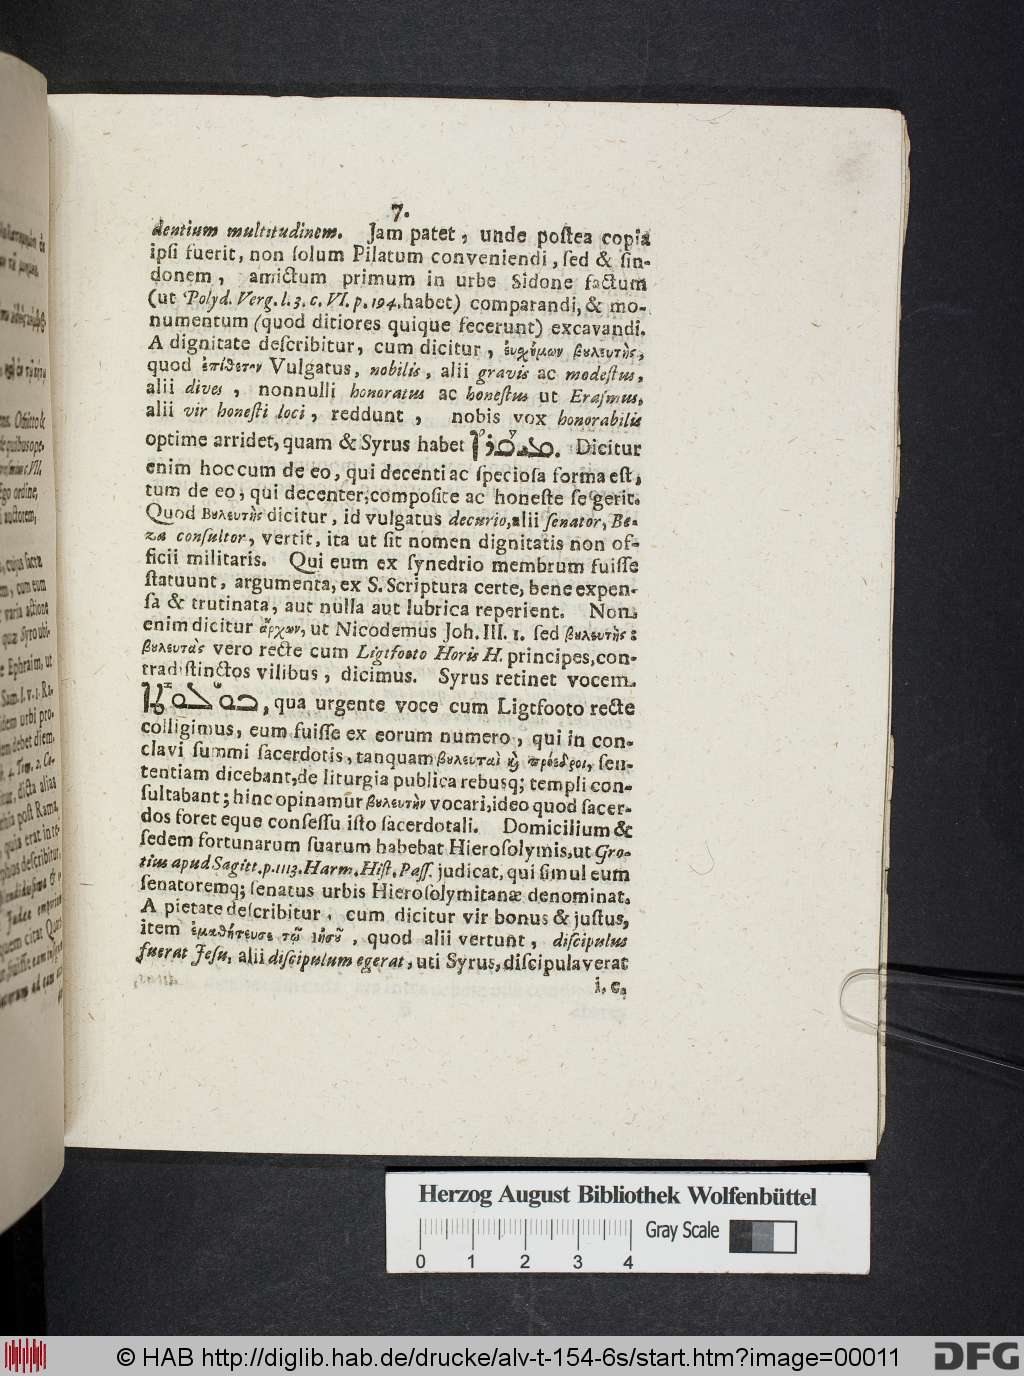 7.
dentium multitudinem. Jam patet, unde poſtea copia
ipſi fuerit, non ſolum Pilatum conveniendi, ſed & ſin-
donem, amictum primum in urbe Sidone factum
(ut Polyd. Verg. l. 3. c. VI. p. 194. habet) comparandi, & mo-
numentum (quod ditiores quique fecerunt) excavandi.
A dignitate deſcribitur, cum dicitur, βȣλευτὴς,
quod ἐπίθετον Vulgatus, nobilis, alii gravis ac modeſtus,
alii dives, nonnulli honoratus ac honeſtus ut Eraſmus,
alii vir honeſti loci, reddunt, nobis vox honorabilis
optime arridet, quam & Syrus habet Dicitur
enim hoccum de eo, qui decenti ac ſpecioſa forma eſt,
tum de eo, qui decenter, compoſite ac honeſte ſe gerit.
Quod βȣλευτὴς dicitur, id vulgatus decurio, alii ſenator, Be-
za conſultor, vertit, ita ut ſit nomen dignitatis non of-
ficii militaris. Qui eum ex ſynedrio membrum fuiſſe
ſtatuunt, argumenta, ex S. Scriptura certe, bene expen-
ſa & trutinata, aut nulla aut lubrica reperient. Non
enim dicitur ἄρχων, ut Nicodemus Joh. III. 1. ſed βȣλευτὴς:
βȣλευτὰς vero recte cum Ligtfooto Horis H. principes, con-
tradiſtinctos vilibus, dicimus. Syrus retinet vocem
, qua urgente voce cum Ligtfooto recte
colligimus, eum fuiſſe ex eorum numero, qui in con-
clavi ſummi ſacerdotis, tanquam βȣλευταὶ ϗ πρόεδροι, ſen-
tentiam dicebant, de liturgia publica rebusq; templi con-
ſultabant; hinc opinamur βȣλευτὴν vocari, ideo quod ſacer-
dos foret eque conſeſſu iſto ſacerdotali. Domicilium &
ſedem fortunarum ſuarum habebat Hieroſolymis, ut Gro-
tius apud Sagitt. p. 1113. Harm. Hiſt. Paſſ. judicat, qui ſimul eum
ſenatoremq; ſenatus urbis Hieroſolymitanæ denominat.
A pietate deſcribitur, cum dicitur vir bonus & juſtus,
item ἐμαθήτευσε τῷ Ἰησȣ͂, quod alii vertunt, diſcipulus
fuerat Jeſu, alii diſcipulum egerat, uti Syrus, diſcipulaverat
i. e.
Herzog August Bibliothek Wolfenbüttel
Gray Scale
0 1 2 3 4
© HAB http://diglib.hab.de/drucke/alv-t-154-6s/start.htm?image=00011
DFG